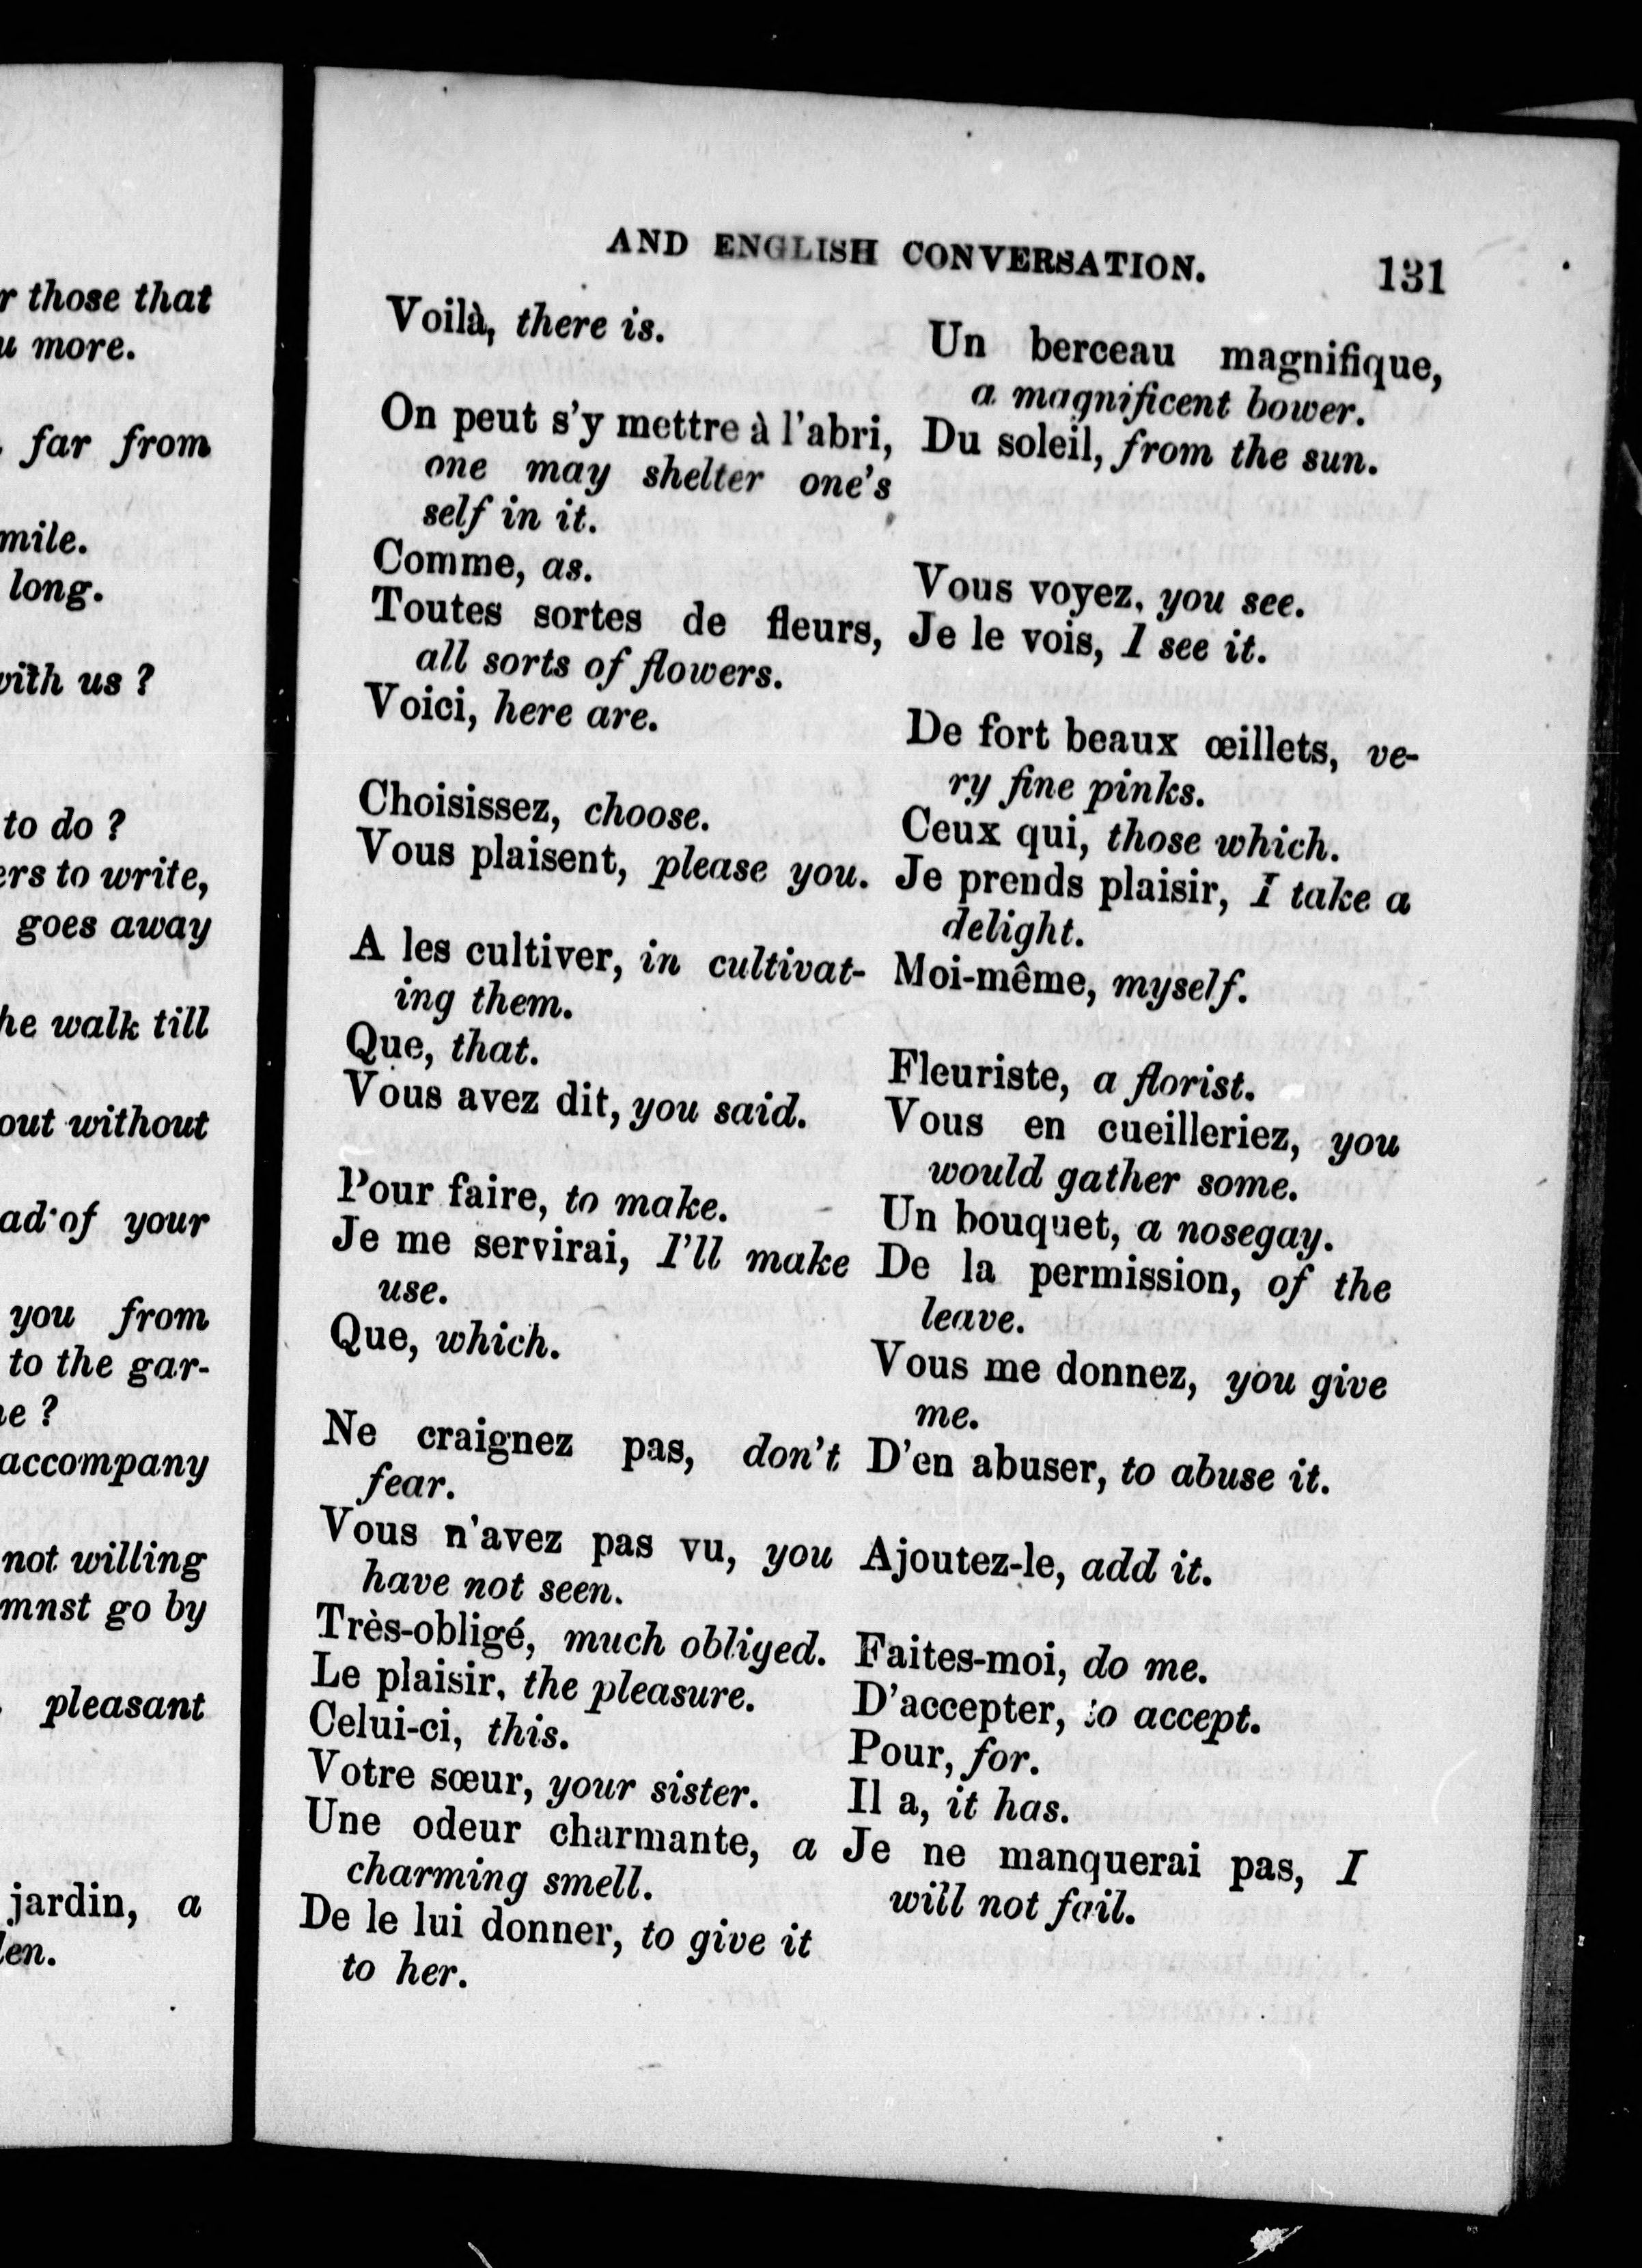 r those that
more.
far from
mile.
long.
with us ?
to do ?
ers to write,
goes away
he walk till
out without
ad of your
you from
to the gar-
e ?
accompany
not willing
mnst go by
pleasant
jardin, a
en.
AND ENGLISH CONVERSATION. 131
Voilà, there is.
On peut s'y mettre à l'abri,
one may shelter one's
self in it.
Comme, as.
Toutes sortes de fleurs,
all sorts of flowers.
Voici, here are.
Choisissez, choose.
Vous plaisent, please you.
A les cultiver, in cultivat-
ing them.
Que, that.
Vous avez dit, you said.
Pour faire, to make.
Je me servirai, I'll make
use.
Que, which.
Ne craignez pas, don't
fear.
Vous n'avez pas vu, you
have not seen.
Très-obligé, much obliged.
Le plaisir, the pleasure.
Celui-ci, this.
Votre sœur, your sister.
Une odeur charmante, a
charming smell.
De le lui donner, to give it
to her.
Un berceau magnifique,
a magnificent bower.
Du soleil, from the sun.
Vous voyez, you see.
Je le vois, I see it.
De fort beaux œillets, ve-
ry fine pinks.
Ceux qui, those which.
Je prends plaisir, I take a
delight.
Moi-même, myself.
Fleuriste, a florist.
Vous en cueilleriez, you
would gather some.
Un bouquet, a nosegay.
De la permission, of the
leave.
Vous me donnez, you give
me.
D'en abuser, to abuse it.
Ajoutez-le, add it.
Faites-moi, do me.
D'accepter, to accept.
Pour, for.
Il a, it has.
Je ne manquerai pas, I
will not fail.